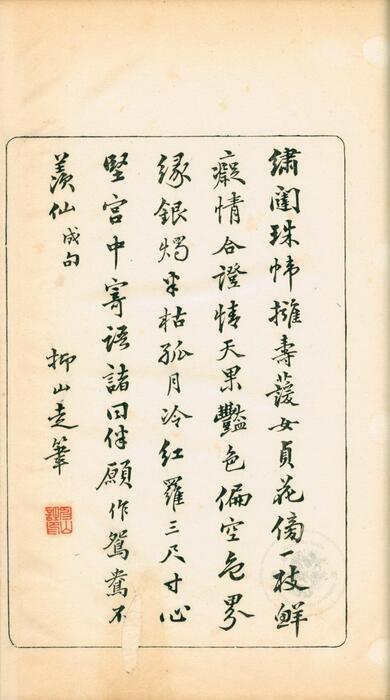 繡闈珠幃擁壽萲女貞花傍一枝鮮
癡情合證情天果豔色偏空色界
緣銀燭半枯孤月冷紅羅三尺寸心
堅宮中寄語諸同伴願作鴛鴦不
羨仙 成句 柳山走筆